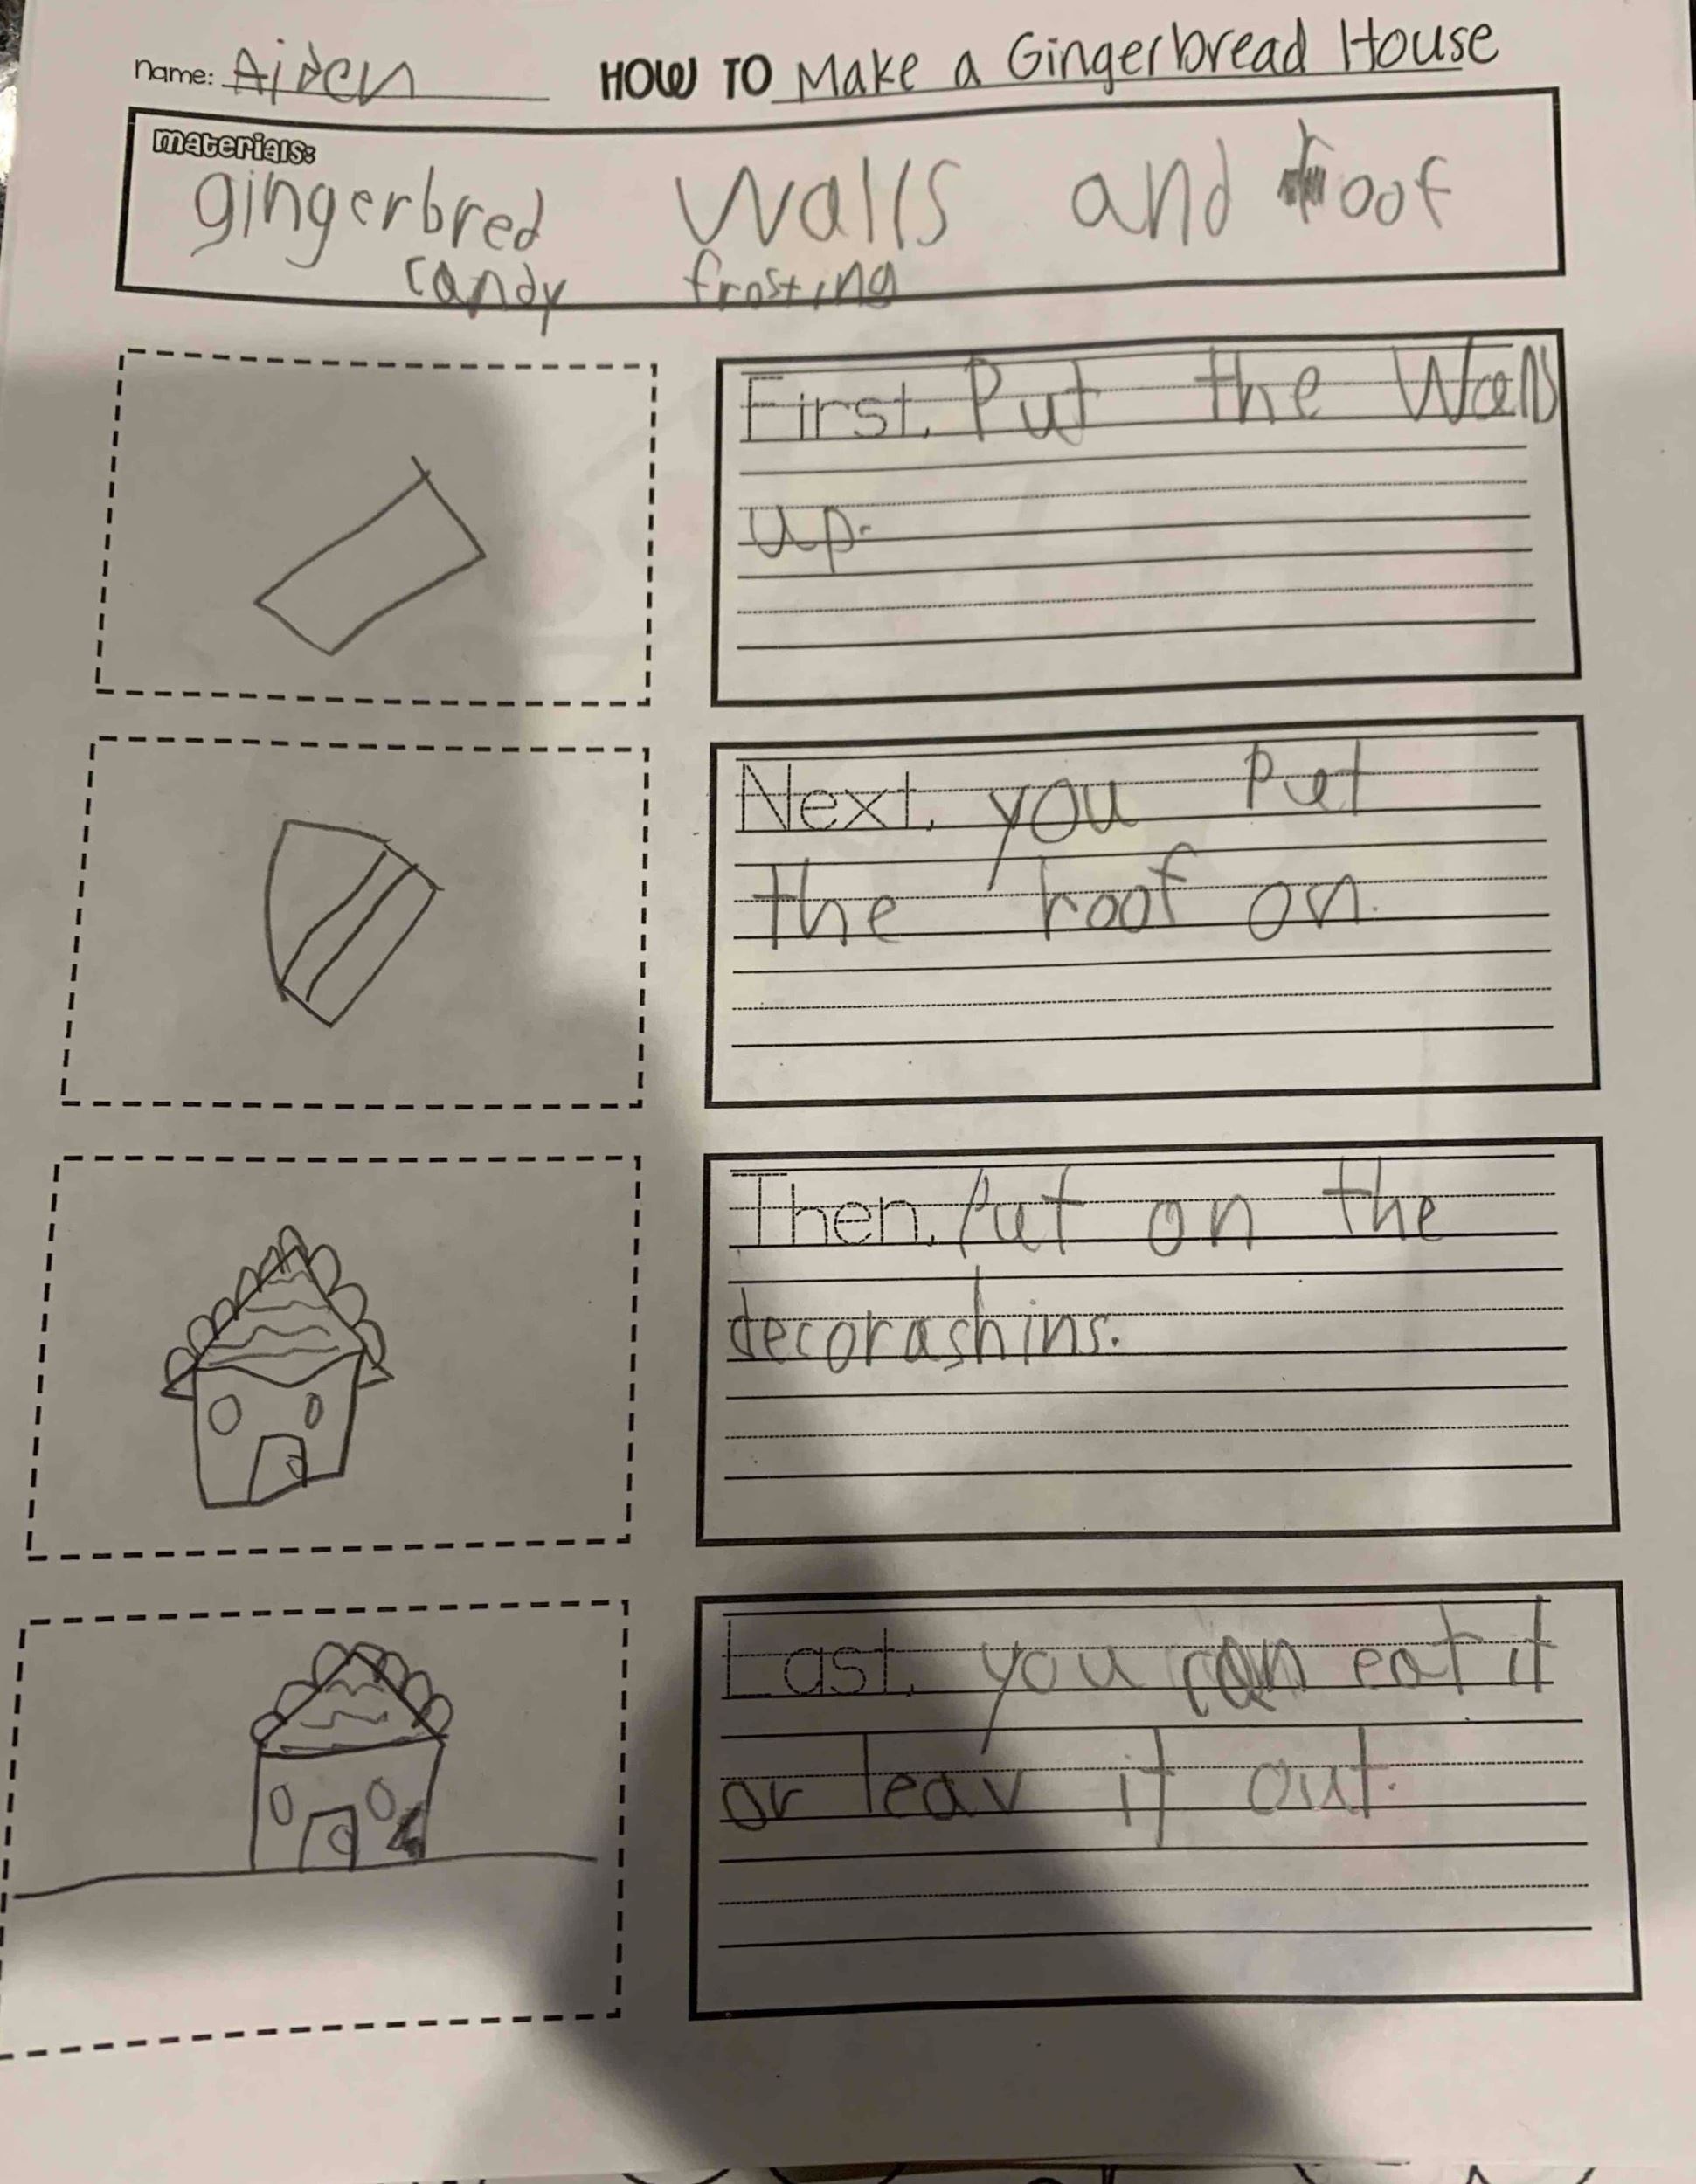 Name: Aiden HOW TO Make a Gingerbread House
materials:
gingerbred walls and roof
candy frosting
First, Put the Walls
up.
Next, you Put
the roof on.
Then, Put on the
decorashins.
Last, you can eat it
or leav it out.